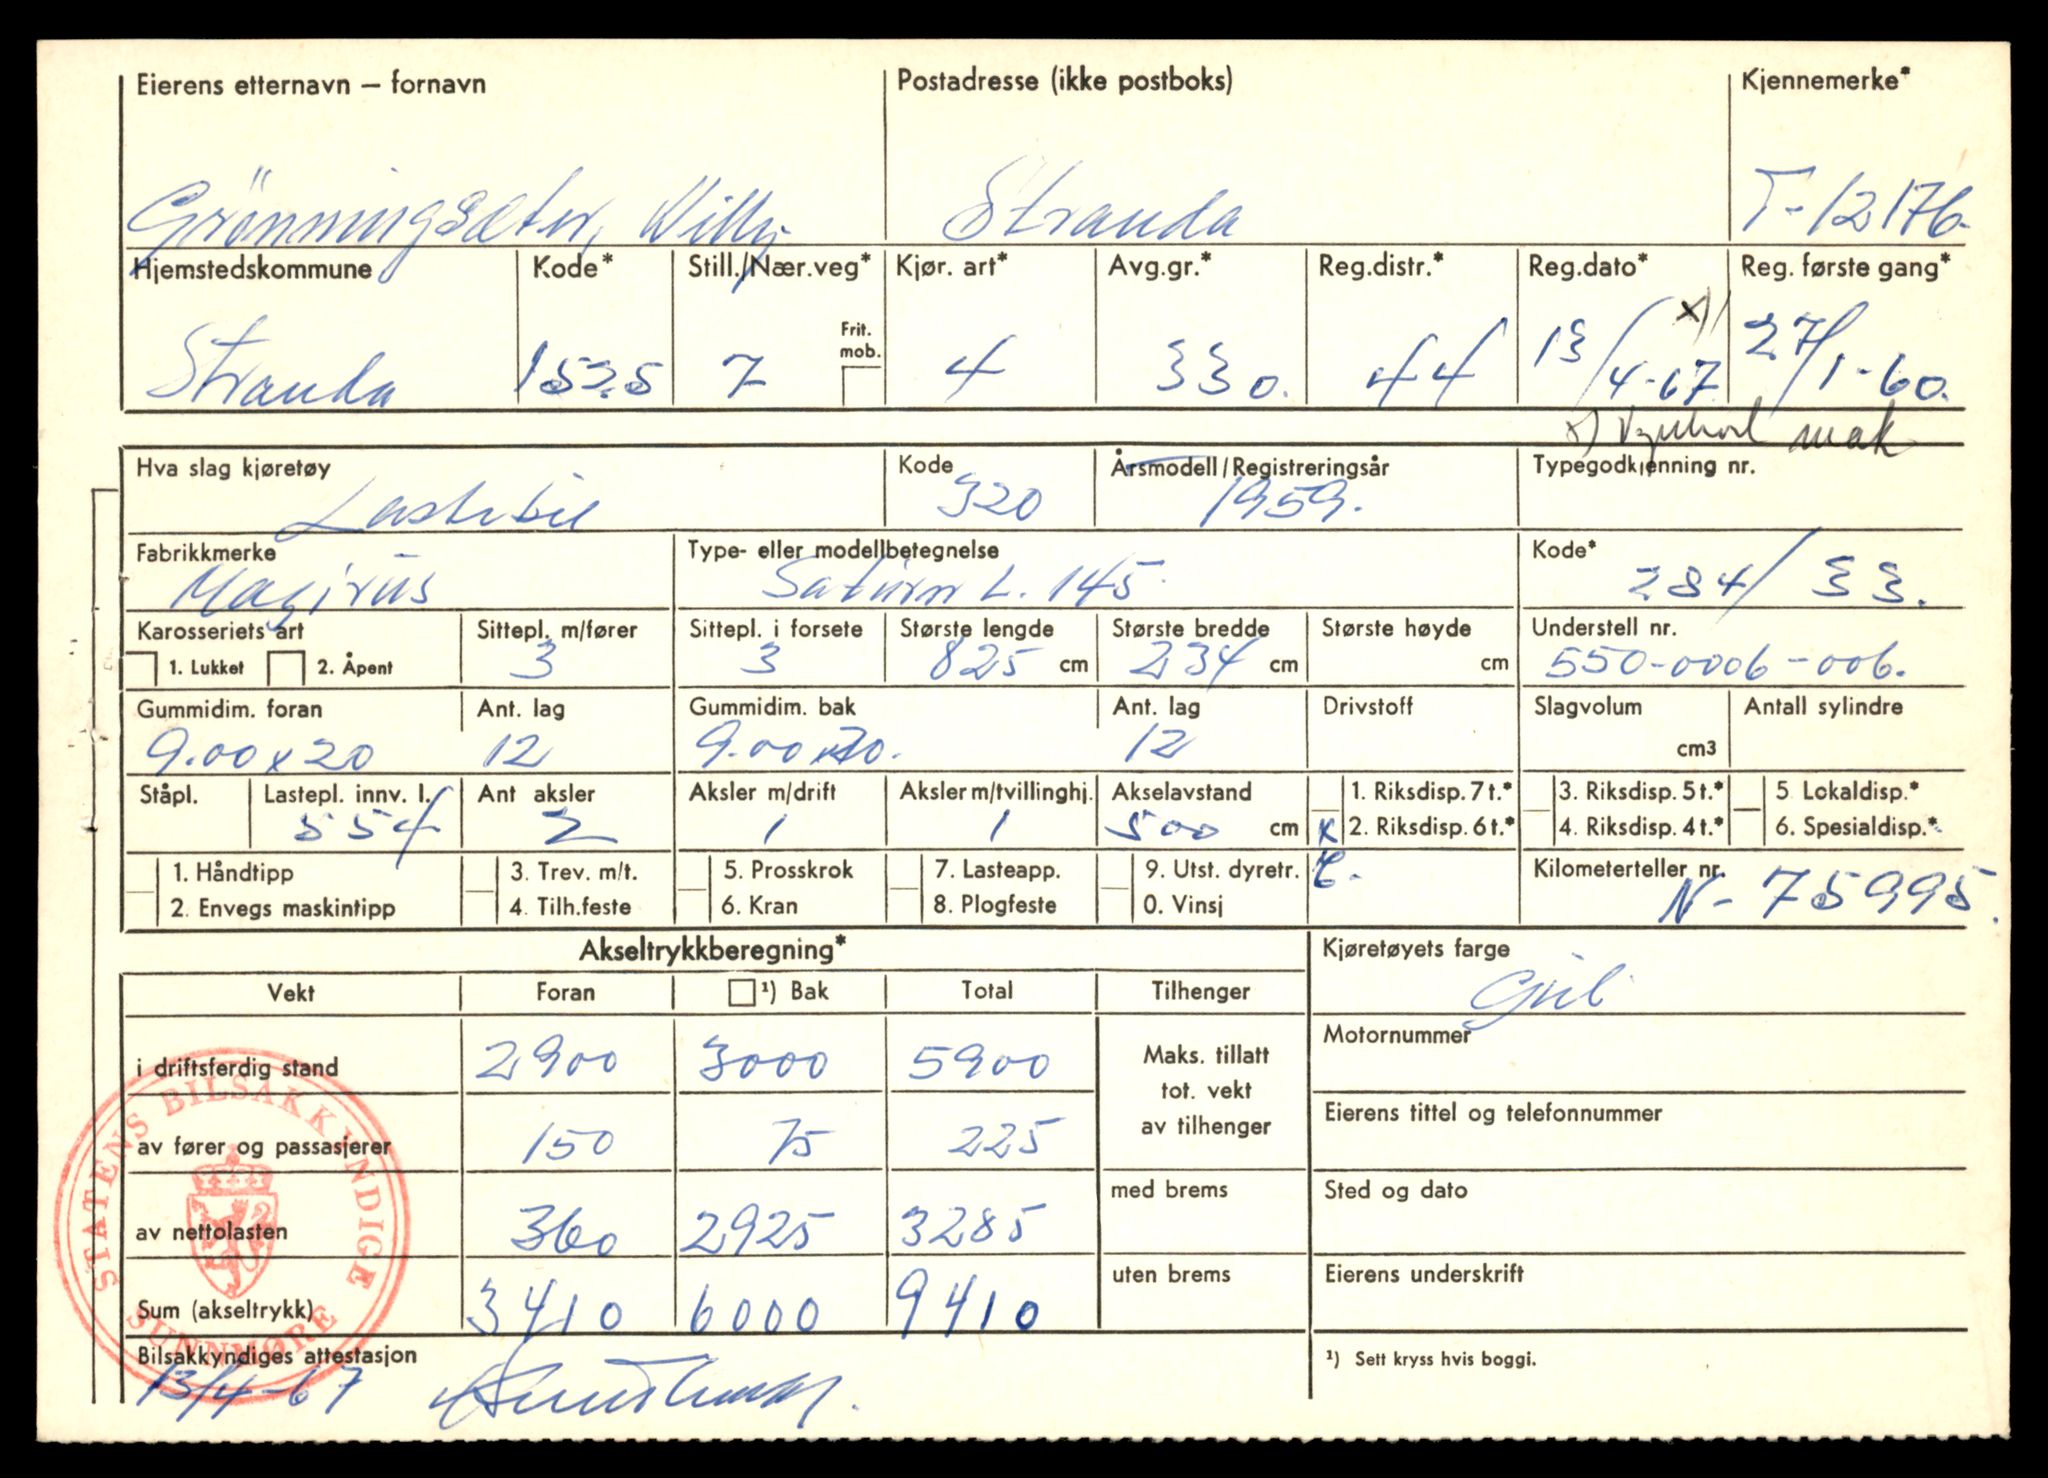 Eierens etternavn – fornavn Postadresse (ikke postboks) Kjennemerke*
Grönningsæter, Willy Stranda T-12176.
Hjemstedskommune Kode* Still./Nær.veg* Kjør. art* Avg.gr.* Reg.distr.* Reg.dato* Reg. første gang*
Frit. mob.
Stranda 1525 7 4 330. 44 13/4-67 x) 27/1-60.
x) mak
Hva slag kjøretøy Kode Årsmodell/Registreringsår Typegodkjenning nr.
Lastebil 320 1959.
Fabrikkmerke Type- eller modellbetegnelse Kode*
Magirus Saturn L. 145. 284/33.
Karosseriets art Sittepl. m/fører Sittepl. i forsete Største lengde Største bredde Største høyde Understell nr.
1. Lukket 2. Åpent 3 3 825 cm 234 cm cm 550-0006-006.
Gummidim. foran Ant. lag Gummidim. bak Ant. lag Drivstoff Slagvolum Antall sylindre
9.00x20 12 9.00x20. 12 cm3
Ståpl. Lastepl. innv. l. Ant aksler Aksler m/drift Aksler m/tvillinghj. Akselavstand 1. Riksdisp. 7 t.* 3. Riksdisp. 5 t.* 5 Lokaldisp.*
554 2 1 1 500 cm x 2. Riksdisp. 6 t.* 4. Riksdisp. 4 t.* 6. Spesialdisp.*
1. Håndtipp 3. Trev. m/t. 5. Prosskrok 7. Lasteapp. 9. Utst. dyretr. Kilometerteller nr.
2. Envegs maskintipp 4. Tilh.feste 6. Kran 8. Plogfeste 0. Vinsj N-75995.
Akseltrykkberegning* Kjøretøyets farge
Vekt Foran ¹) Bak Total Tilhenger
i driftsferdig stand 2900 3000 5900 Maks. tillatt tot. vekt av tilhenger
Motornummer
av fører og passasjerer 150 75 225
Eierens tittel og telefonnummer
av nettolasten 360 2925 3285 med brems Sted og dato
Sum (akseltrykk) 3410 6000 9410 uten brems Eierens underskrift
Bilsakkyndiges attestasjon ¹) Sett kryss hvis boggi.
13/4-67
STATENS BILSAKKYNDIGE
SUNNMØRE